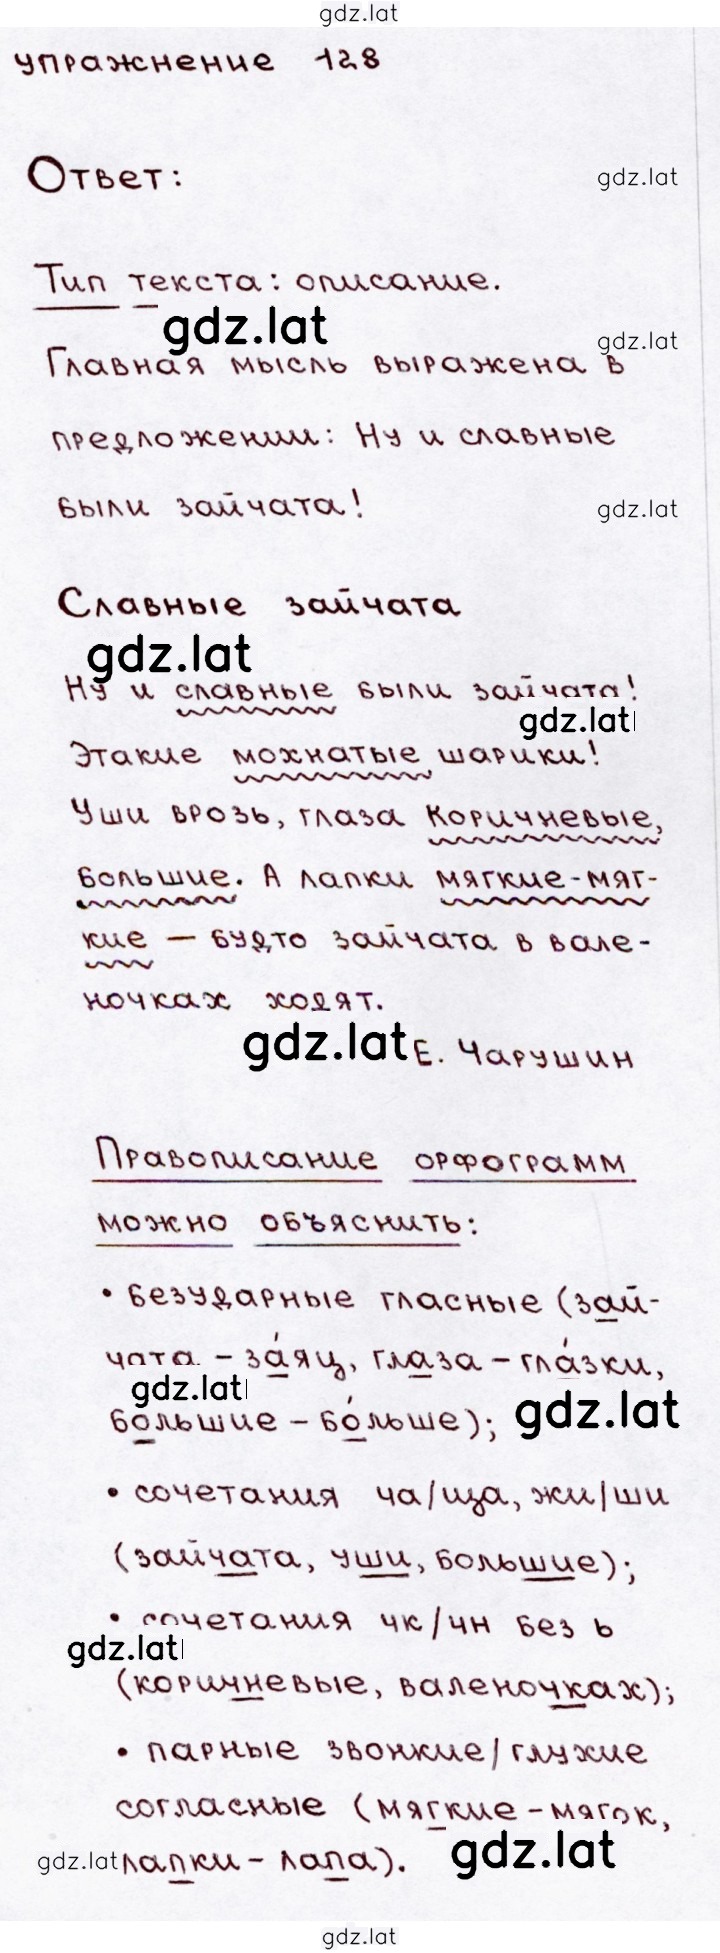 gdz.lat
упражнение 128
Ответ:
gdz.lat
Тип текста: описание.
gdz.lat
gdz.lat
Главная мысль выражена в
предложении: Ну и славные
были зайчата!
gdz.lat
Славные зайчата
gdz.lat
Ну и славные были зайчата!
gdz.lat
Этакие мохнатые шарики!
Уши врозь, глаза коричневые,
большие. А лапки мягкие-мяг-
кие – будто зайчата в вале-
ночках ходят.
gdz.lat
Е. Чарушин
Правописание орфограмм
можно объяснить:
• безударные гласные (зай-
чата – за́яц, глаза – гла́зки,
gdz.lat
большие – бо́льше);
gdz.lat
• сочетания ча/ща, жи/ши
(зайчата, уши, большие);
• сочетания чк/чн без ь
gdz.lat
(коричневые, валеночках);
• парные звонкие/глухие
согласные (мягкие – мягок,
gdz.lat
лапки – лапа).
gdz.lat
gdz.lat